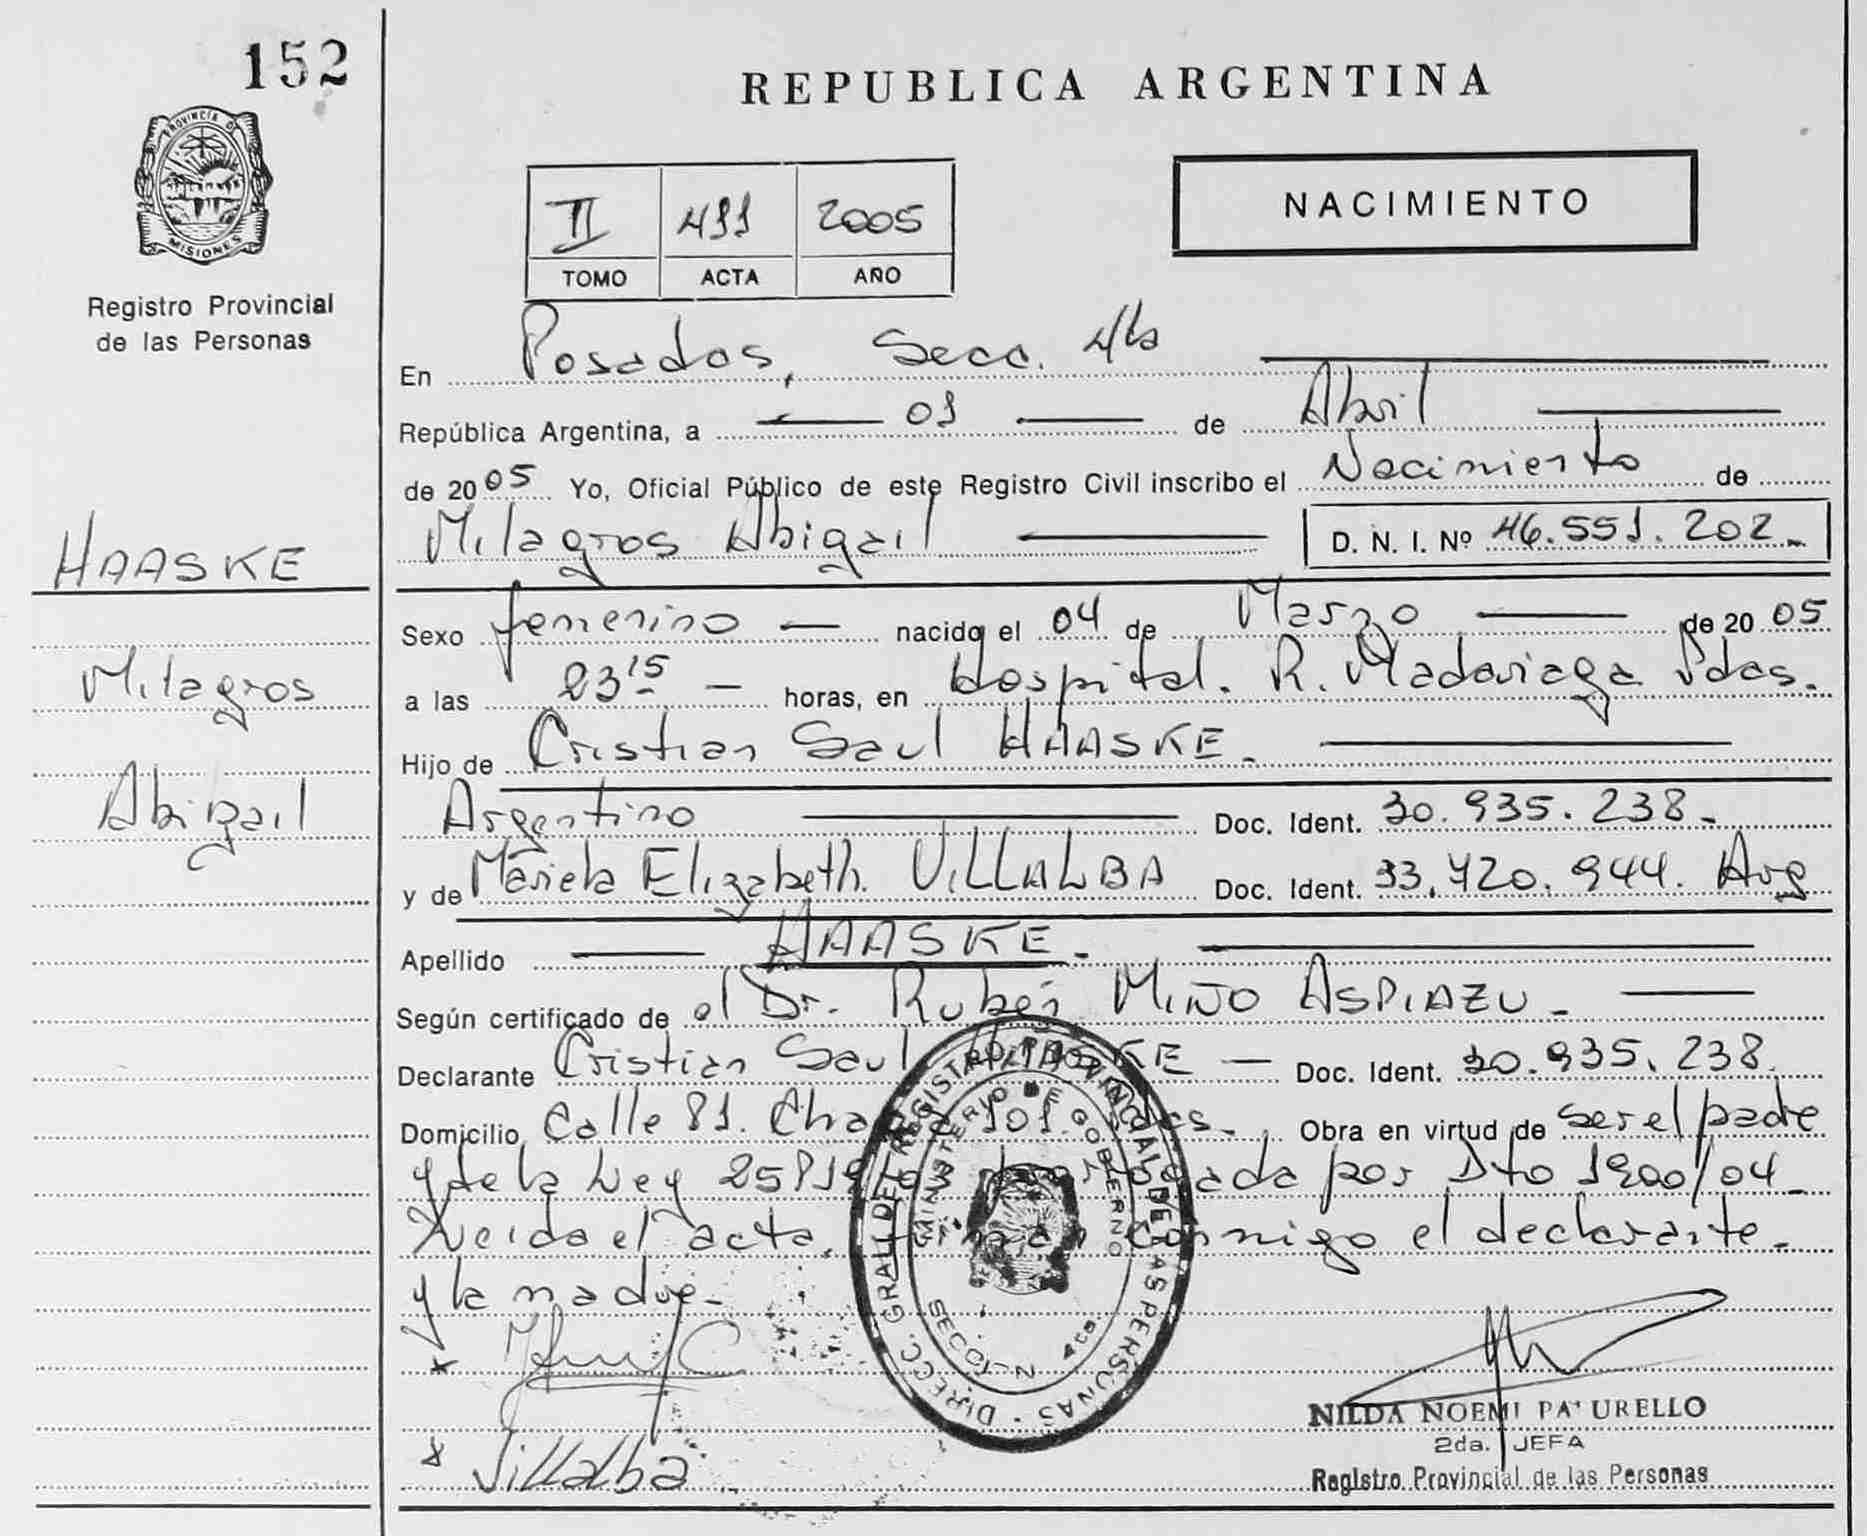 152
REPUBLICA ARGENTINA
PROVINCIA DE
MISIONES
Registro Provincial
de las Personas
NACIMIENTO
II 411 2005
TOMO ACTA AÑO
En Posadas, Secc. 4ta
República Argentina, a 01 de Abril
de 2005 Yo, Oficial Público de este Registro Civil inscribo el Nacimiento de
Milagros Abigail D. N. I. Nº 46.551.202
HAASKE
Milagros
Abigail
Sexo femenino nacido el 04 de Marzo de 2005
a las 23 15 horas, en Hospital. R. Madariaga Pdas.
Hijo de Cristian Saul HAASKE.
Argentino Doc. Ident. 30.935.238
y de Mariela Elizabeth. VILLALBA Doc. Ident. 33.420.944. Arg
Apellido HAASKE.
Según certificado de el Dr. Rubén MIÑO ASPIAZU
Declarante Cristian Saul HAASKE Doc. Ident. 30.935.238
Domicilio Calle 81. 101. Pdas. Obra en virtud de ser el padre
y de la Ley 25819 por Dto 1900/04
Leida el acta, conmigo el declarante
y la madre
Villalba
DIRECC. GRAL. DEL REGISTRO PROVINCIAL DE LAS PERSONAS
MINISTERIO DE GOBIERNO
SECCION 4ta.
NILDA NOEMI PATURELLO
2da. JEFA
Registro Provincial de las Personas